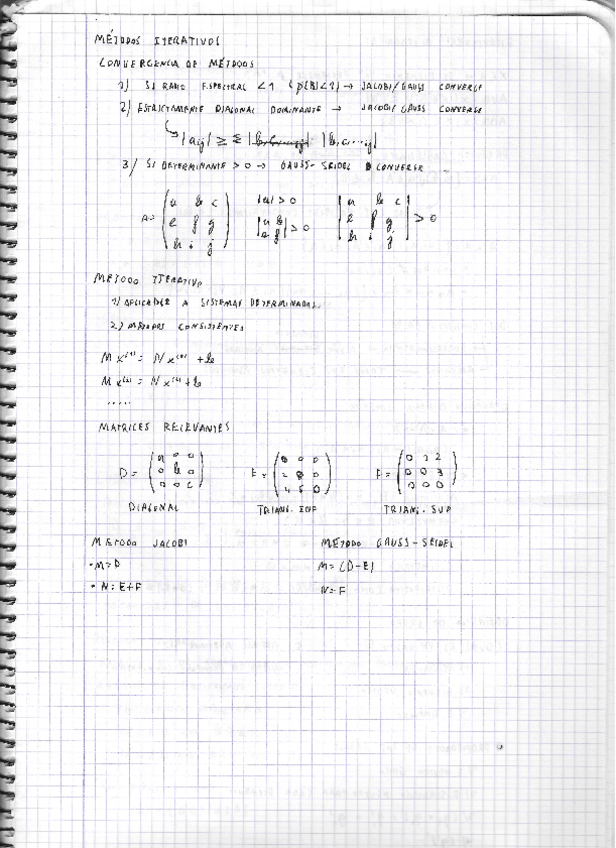 MÉTODOS ITERATIVOS
CONVERGENCIA DE MÉTODOS
1) SI RADIO ESPECTRAL < 1 (ρ(B)<1) → JACOBI/GAUSS CONVERGE
2) ESTRICTAMENTE DIAGONAL DOMINANTE → JACOBI/GAUSS CONVERGE
|aij| ≥ Σ |b, c, ... j|
3) SI DETERMINANTE > 0 → GAUSS-SEIDEL CONVERGE
A = (a b c / e f g / h i j) |a| > 0 |a b / e f| > 0 |a b c / e f g / h i j| > 0
MÉTODO ITERATIVO
1) APLICADOR A SISTEMAS DETERMINADOS
2) MÉTODOS CONSISTENTES
M x⁽¹⁾ = N x⁽⁰⁾ + b
M x⁽²⁾ = N x⁽¹⁾ + b
.....
MATRICES RELEVANTES
D = (a 0 0 / 0 b 0 / 0 0 c) E = (0 0 0 / 2 0 0 / 4 5 0) F = (0 1 2 / 0 0 3 / 0 0 0)
DIAGONAL TRIANG. INF TRIANG. SUP
METODO JACOBI MÉTODO GAUSS-SEIDEL
• M = D M = (D - E)
• N = E + F N = F